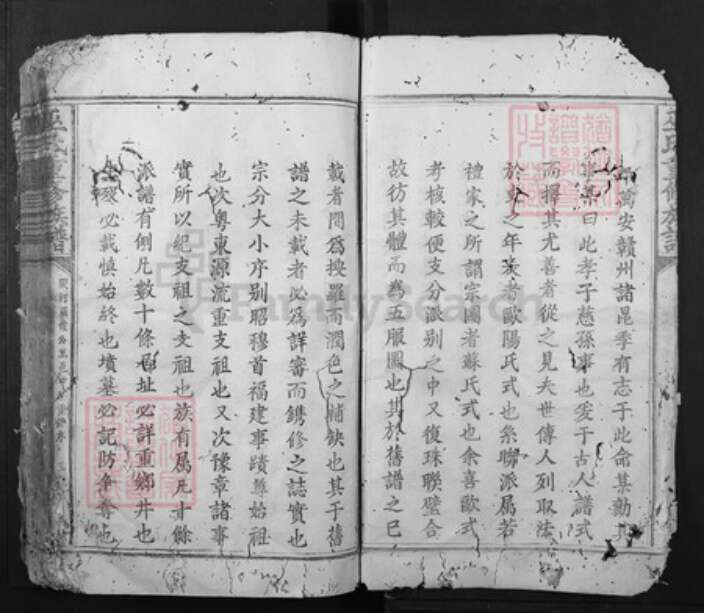 萬安贛州諸昆季有志于此命某勷其
事某曰此孝子慈孫事也爰于古人譜式
而擇其尤善者從之見夫世傳人列取法
於史之年表者歐陽氏式也系聯派属若
禮家之所謂宗圖者蘇氏式也余喜歐式
考核較便支分派别之中又復珠聯璧合
故彷其體而為五服圖也其於舊譜之已
載者閒為搜羅而潤色之補缺也其于舊
譜之未載者必為詳審而鐫修之誌實也
宗分大小序别昭穆首福建事蹟尊始祖
也次粤東源流重支祖也又次豫章諸事
實所以紀支祖之支祖也族有属凡十餘
派譜有例凡數十條居址必詳重鄉井也
生殁必載慎始終也墳墓必記防争奪也
巫氏重修族譜
巫氏重修族譜
FamilySearch